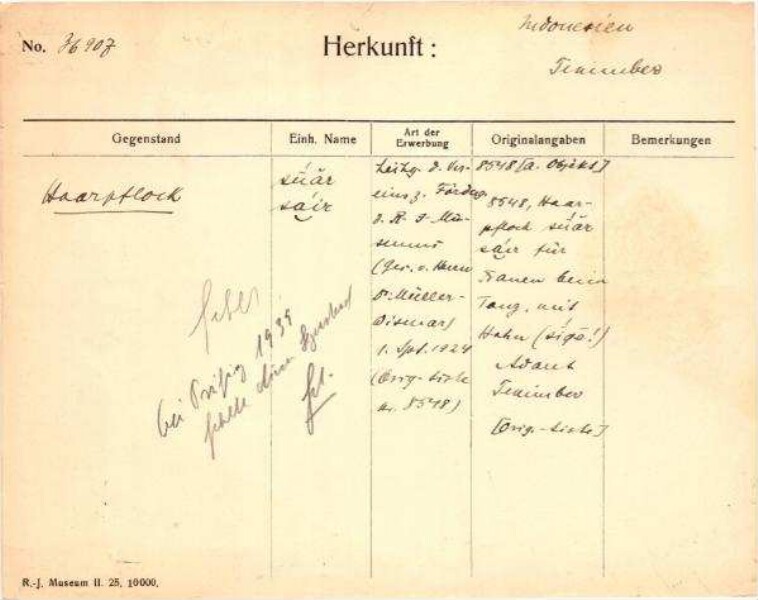 No. 36907
Herkunft:
Indonesien
Tenimber
Gegenstand
Einh. Name
Art der Erwerbung
Originalangaben
Bemerkungen
Haarpflock
súăr
sáir
Leihg. d. Ver-
eins z. Förderg
d. R-J-Mu-
seums
(Ges. v. Herrn
Dr. Müller-
Wismar)
1. Spt. 1924
(Orig-Liste
nr. 8548)
8548 [a. Objekt]
8548, Haar-
pflock súăr
sáir für
Frauen beim
Tanz, mit
Hahn
Adaut
Tenimber
[Orig.-Liste]
fehlt
bei Prüfg 1939
fehlte
R.-J. Museum II. 25. 10000.